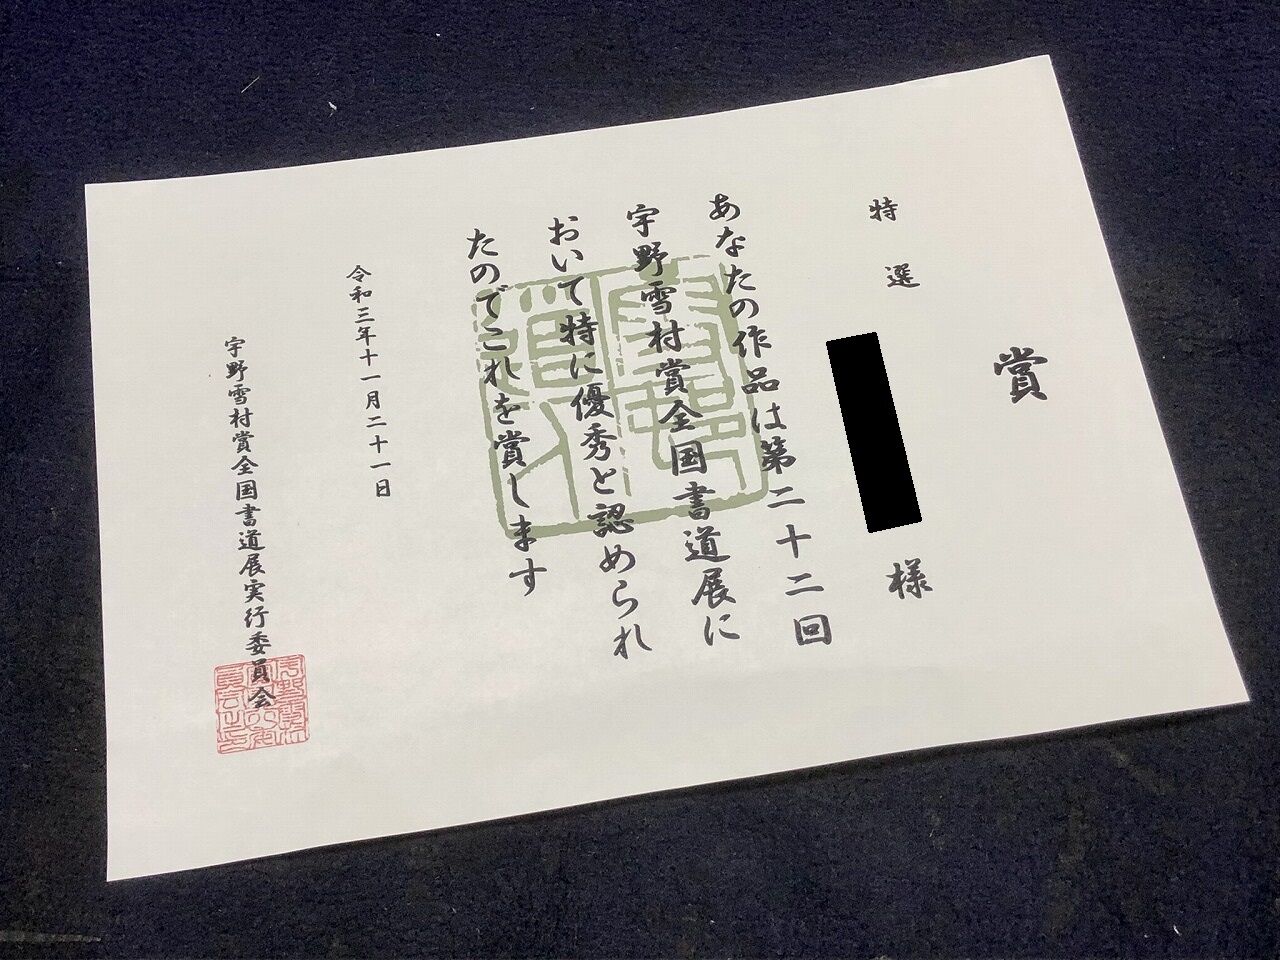 賞
特選
様
あなたの作品は第二十二回
宇野雪村賞全国書道展に
おいて特に優秀と認められ
たのでこれを賞します
令和三年十一月二十一日
宇野雪村賞全国書道展実行委員会